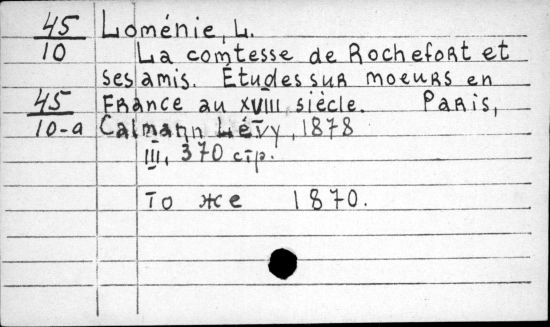 45 Loménie, L.
10 La comtesse de Rochefort et
ses amis. Études sur moeurs en
45 France au XVIII siècle. Paris,
10-a Calmann Lévy, 1878
III, 370 стр.
То же 1870.